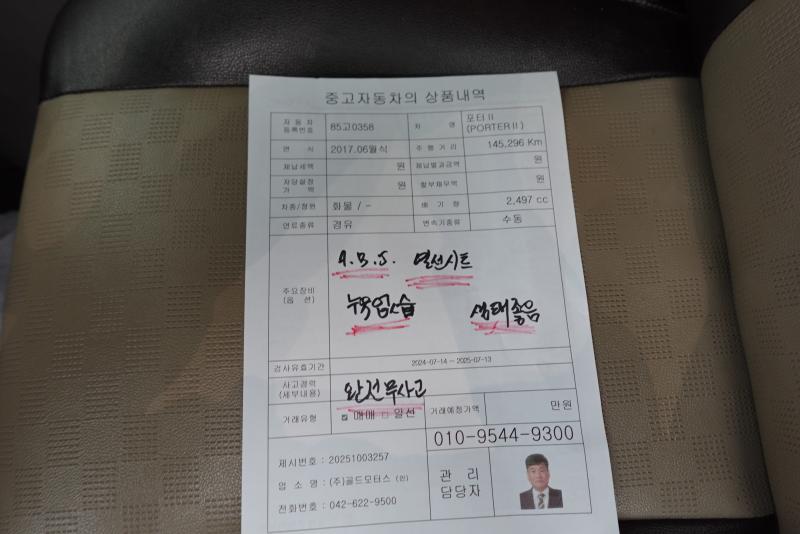 중고자동차의 상품내역
자동차 등록번호 85고0358 차 명 포터Ⅱ (PORTERⅡ)
연 식 2017.06월식 주행거리 145,296 Km
체납세액 원 체납벌과금액 원
저당설정 가 액 원 할부채무액 원
차종/정원 화물 / - 배기량 2,497 cc
연료종류 경유 변속기종류 수동
주요장비 (옵 션)
A.B.S. 열선시트
누유없습 상태좋음
검사유효기간 2024-07-14 ~ 2025-07-13
사고경력 (세부내용) 완전무사고
거래유형 ☑ 매매 □ 알선 거래예정가액 만원
010-9544-9300
제시번호 : 20251003257
업 소 명 : (주)골드모터스 (인)
전화번호 : 042-622-9500
관 리
담당자